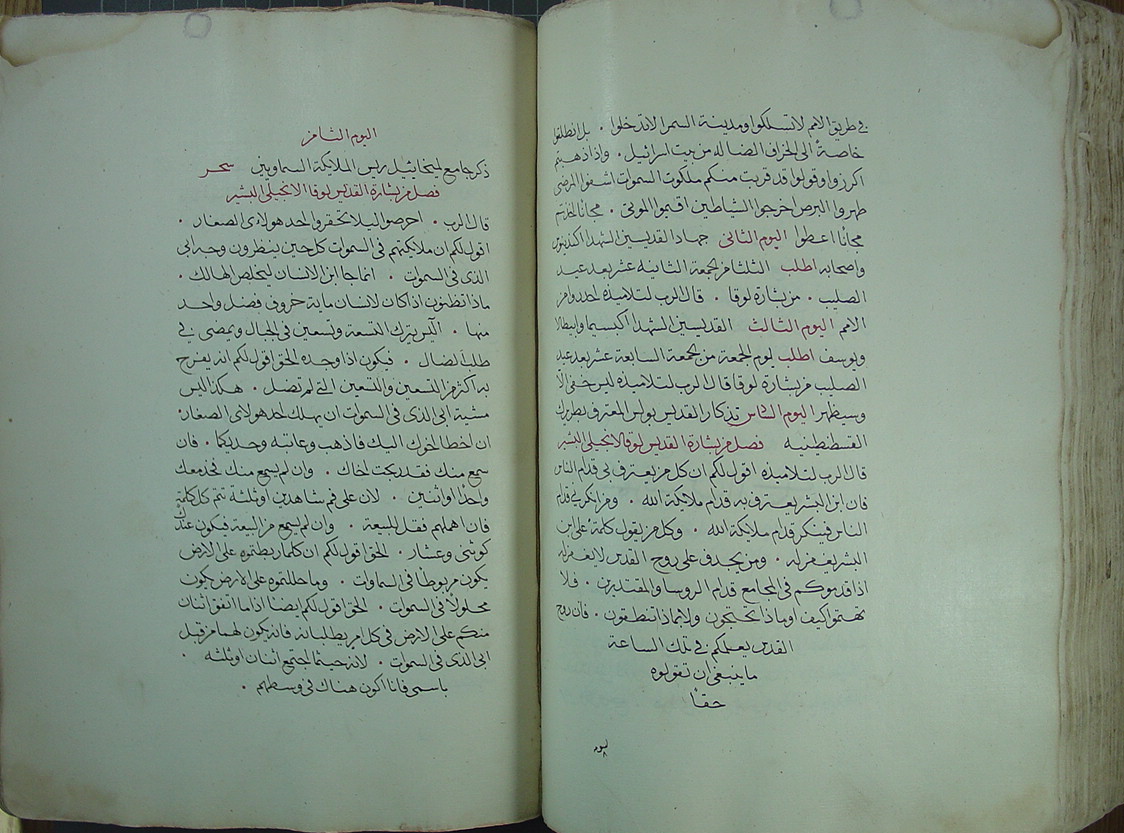 في طريق الامم لا تسلكوا ومدينة السمرا لا تدخلوا . بل انطلقوا
خاصة الى الخراف الضاله من بيت اسرائيل . واذا ذهبتم
اكرزوا وقولوا قد قربت منكم ملكوت السموات اشفوا المرضى
طهروا البرص اخرجوا الشياطين اقيموا الموتى . مجانا اخذتم
مجانا اعطوا اليوم الثاني جهاد القديسين الشهدا اكندينوس
واصحابه اطلب الثلثا من الجمعة الثانيه عشر بعد عيد
الصليب . من بشارة لوقا . قال الرب لتلاميذه احدروا من
الامم اليوم الثالث القديسين الشهدا اكبسيما وايطالا
ويوسف اطلب يوم الجمعة من الجمعة السابعة عشر بعد عيد
الصليب من بشارة لوقا قال الرب لتلاميذه ليس خفي الا
وسيظهر اليوم السادس تذكار القديس بولس المعترف بطريرك
القسطنطينيه فصل من بشارة القديس لوقا الانجيلي البشير
قال الرب لتلاميذه اقول لكم ان كل من يعترف بي قدام الناس
فان ابن البشر يعترف به قدام ملايكة الله . ومن انكرني قدام
الناس فينكر قدام ملايكة الله . وكل من يقول كلمة على ابن
البشر يغفر له . ومن يجدف على روح القدس لا يغفر له
اذا قدموكم في المجامع قدام الروسا والمقتدرين . فلا
تهتموا كيف او بماذا تحتجون ولا بماذا تنطقون . فان روح
القدس يعلمكم في تلك الساعة
ما ينبغي ان تقولوه
حقا
اليوم الثامن
ذكر جامع لميخائيل ريس الملايكة السماويين سحر
فصل من بشارة القديس لوقا الانجيلي البشير
قال الرب . احرصوا ليلا تحقروا احد هولاى الصغار .
اقول لكم ان ملايكتهم في السموات كل حين ينظرون وجه ابي
الذى في السموات . انما جا ابن الانسان ليخلص الهالك .
ماذا تظنون اذا كان لانسان ماية خروف فضل واحد
منها . اليس يترك التسعة وتسعين في الجبال ويمضى في
طلب الضال . فيكون اذا وجده الحق اقول لكم انه يفرح
به اكثر من التسعين والتسعين التي لم تضل . هكذا ليس
مشية ابي الذى في السموات ان يهلك احد هولاى الصغار .
ان اخطا اخوك اليك فاذهب وعاتبه وحديكما . فان
سمع منك فقد ربحت اخاك . وان لم يسمع منك فخذ معك
واحدا او اثنين . لان على فم شاهدين او ثلثة تتم كل كلمة
فان اهملهم فقل للبيعة . وان لم يسمع من البيعة فيكون عندك
كوثني وعشار . الحق اقول لكم ان كلما ربطتموه على الارض
يكون مربوطا في السماوات . وما حللتموه على الارض يكون
محلولا في السموات . الحق اقول لكم ايضا اذا ما اتفق اثنان
منكم على الارض في كل امر يطلبانه فانه يكون لهما من قبل
ابي الذى في السموات . لانه حيثما اجتمع اثنان او ثلثه .
باسمي فانا اكون هناك في وسطهم .